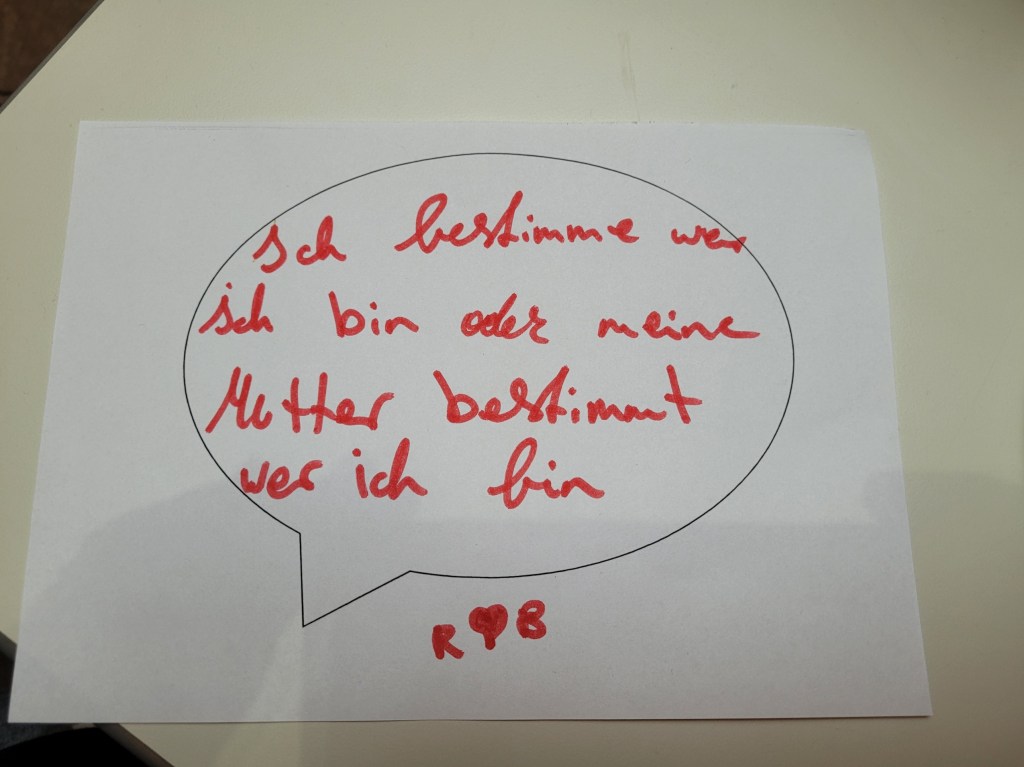 Ich bestimme wer
ich bin oder meine
Mutter bestimmt
wer ich bin
R ♥ B